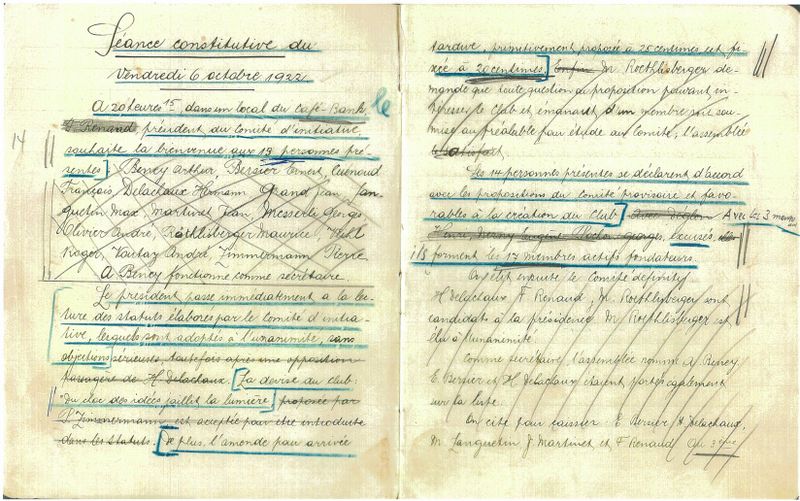 Séance constitutive du
Vendredi 6 octobre 1922
A 20 heures 15, dans un local du Café-Bank, le
F Renaud, président du Comité d'initiative,
14
souhaite la bienvenue aux 13 personnes pré-
sentes: Beney Arthur, Bersier Ernest, Cuénoud
François, Delachaux Hermann Grand Jean, Lan-
guetin Max, Martinet Jean, Messerli Georges
Olivier André, Röthlisberger Maurice,
Roger, Vautay André, Zimmermann Pierre
A Beney fonctionne comme secrétaire
Le président passe immédiatement a la lec-
ture des statuts élaborés par le comité d'initia-
tive, lesquels sont adoptés à l'unanimité, sans
objections sérieuses, toutefois après une opposition
passagère de H. Delachaux. La devise du club:
"Du choc des idées jaillit la lumière" proposée par
P. Zimmermann, est acceptée pour être introduite
dans les statuts. De plus, l'amende pour arrivée
tardive, primitivement proposée à 25 centimes est fi-
xée à 20 centimes. Enfin M. Roethlisberger de-
mande que toute question ou proposition pouvant in-
téresser le Club et émanant d'un membre soit sou-
mise au préalable pour étude au Comité; l'assemblée
Les 14 personnes présentes se déclarent d'accord
avec les propositions du comité provisoire et favo-
rables à la création du Club. Avec Avec les 3 manquants
Henri, Eugène georges, excusés,
forment les 17 membres actifs fondateurs.
On élit ensuite le Comité définitif
H Delachaux F Renaud, M. Roethlisberger sont
candidats à la présidence M Roethlisberger est
élu à l'unanimité.
Comme secrétaire l'assemblée nomme A Beney
E. Bersier et H Delachaux étaient portés également
sur la liste.
On cite pour caissier: E Bersier H Delachaux,
M. Languetin J Martinet et F Renaud Au 3ème